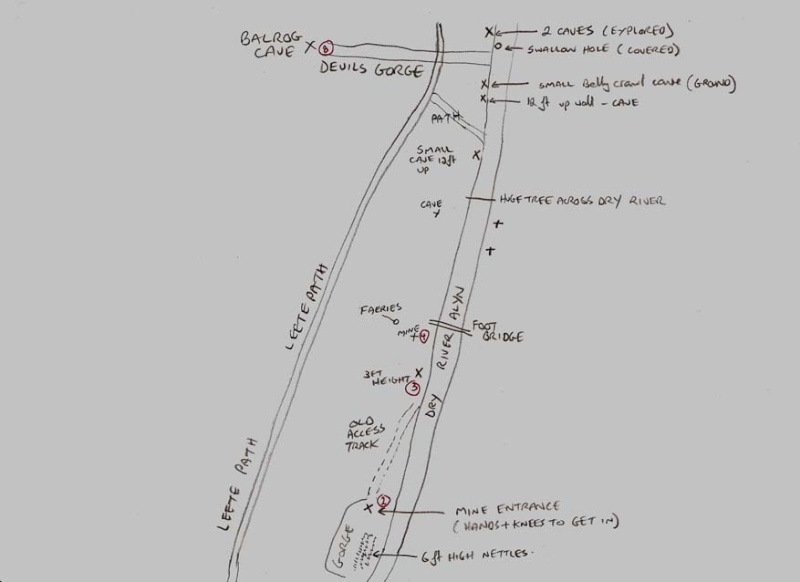 BALROG
CAVE
X
8
DEVILS GORGE
X 2 CAVES (EXPLORED)
SWALLOW HOLE (COVERED)
X SMALL Belly CRAWL CAVE (GROUND)
X 12ft up wall - CAVE
PATH
SMALL
CAVE 12ft
UP
X
CAVE
HUGE TREE ACROSS DRY RIVER
LEETE PATH
FAERIES
MINE
4
FOOT
BRIDGE
DRY RIVER ALYN
3FT
HEIGHT
X
3
OLD
ACCESS
TRACK
LEETE PATH
X
MINE ENTRANCE
(HANDS + KNEES TO GET IN)
GORGE
6ft HIGH NETTLES.